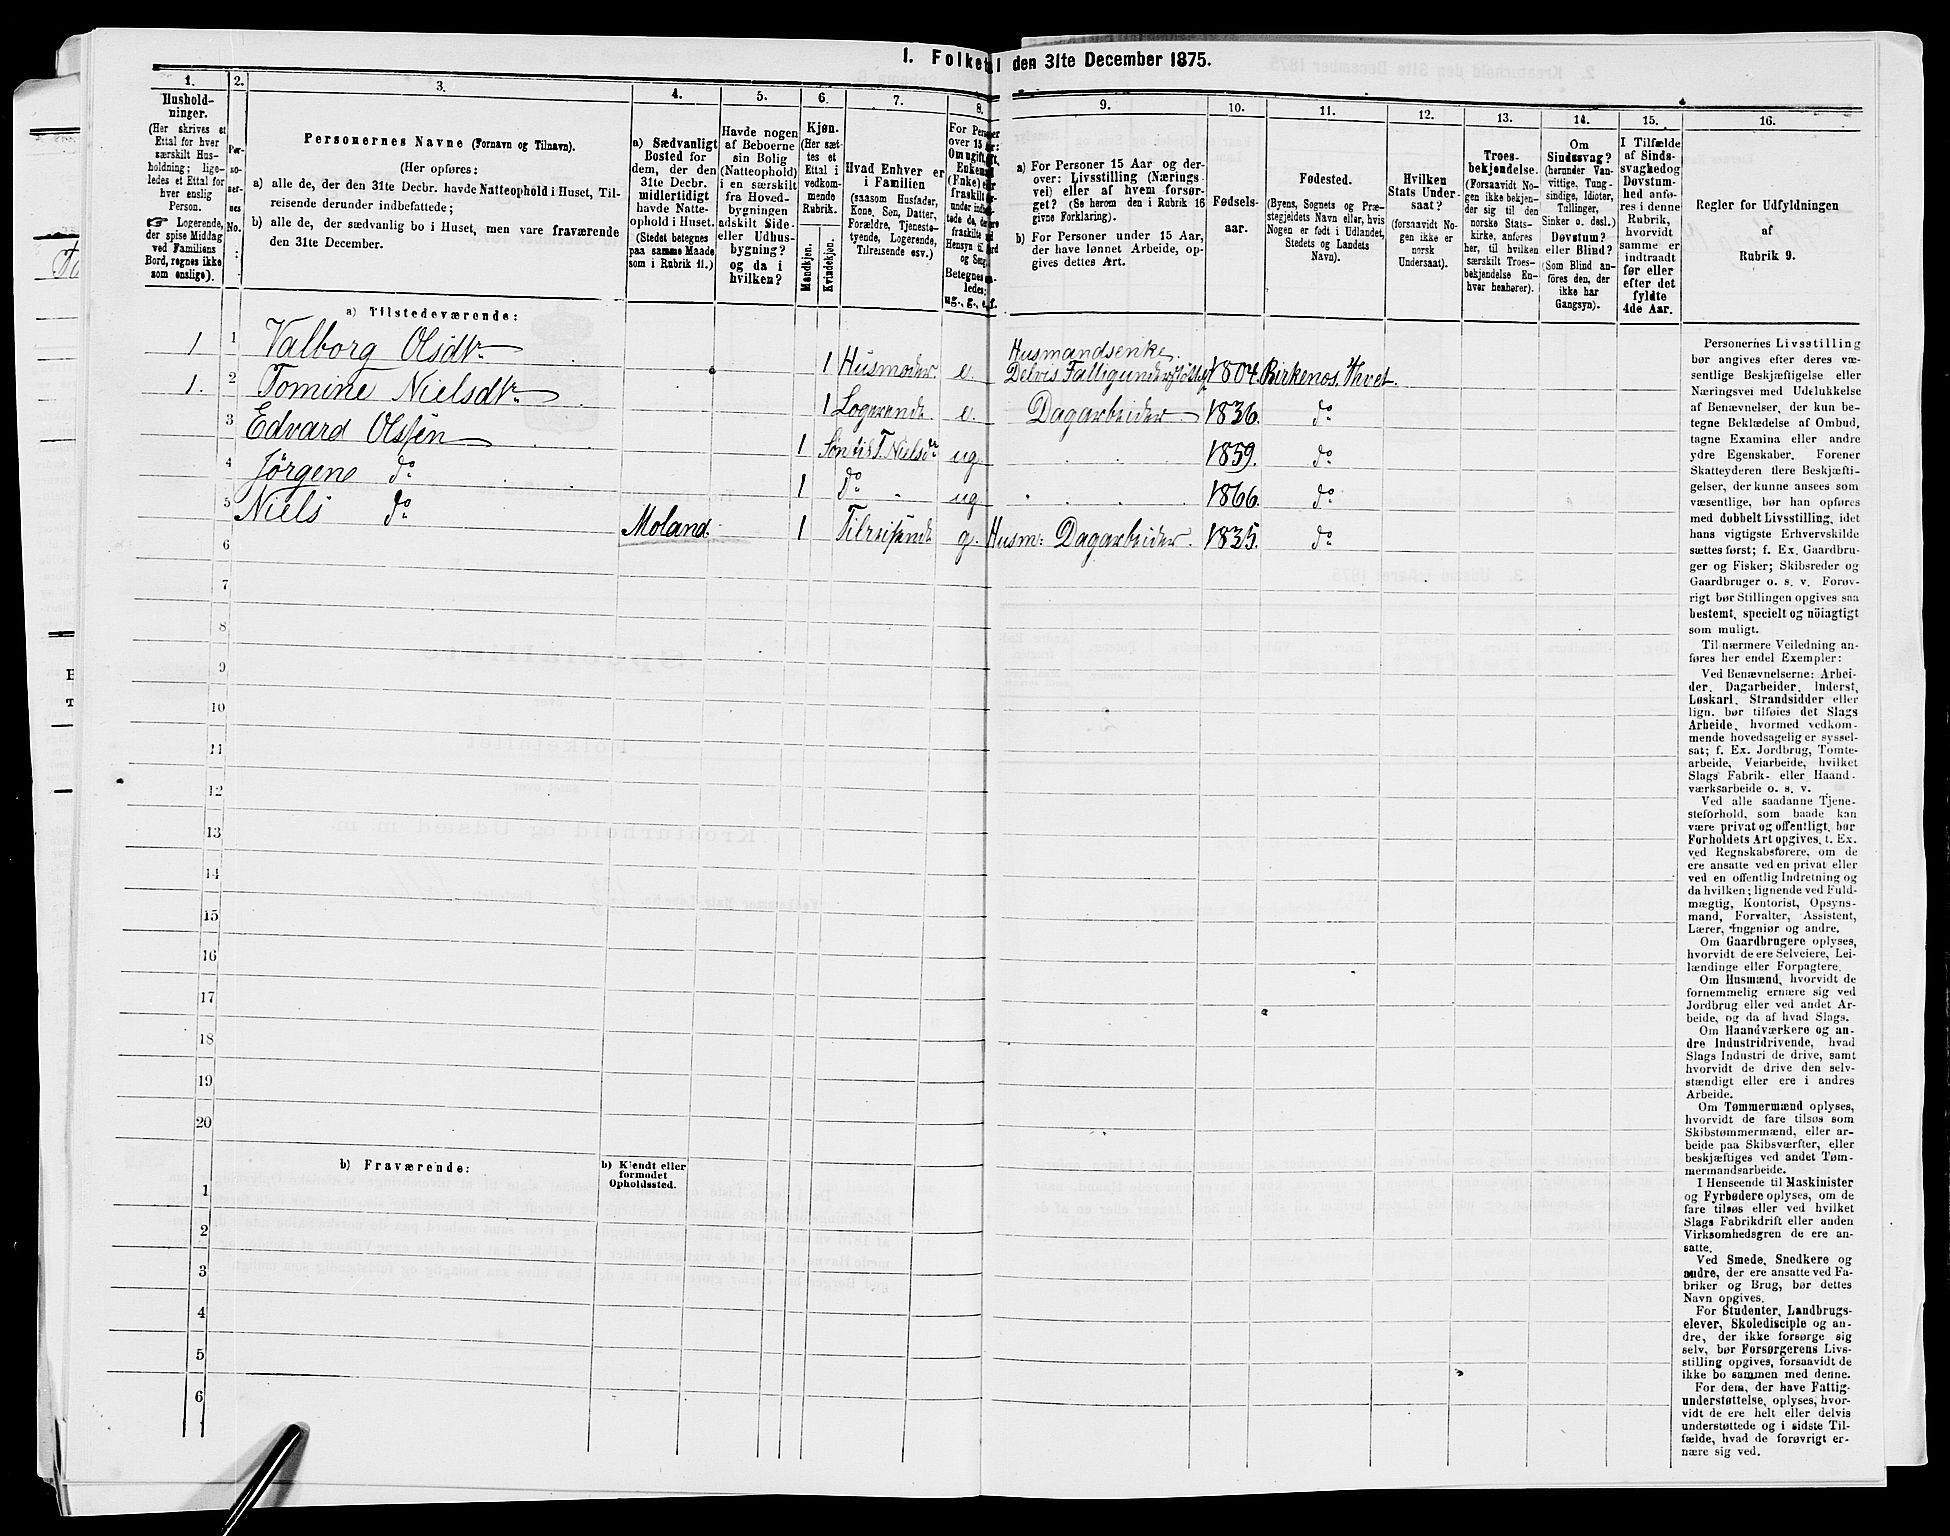 1. Folketal den 31te December 1875.
1.
Hushold-
ninger.
(Her skrives et
Ettal for hver
særskilt Hus-
holdning; lige-
ledes et Ettal for
hver enslig
Person.
☞ Logerende,
der spise Middag
ved Familiens
Bord, regnes ikke
som enslige).
2.
Per-
so-
ner-
nes
No.
3.
Personernes Navne (Fornavn og Tilnavn).
(Her opføres:
a) alle de, der den 31te Decbr. havde Natteophold i Huset, Til-
reisende derunder indbefattede;
b) alle de, der sædvanlig bo i Huset, men vare fraværende
den 31te December.
4.
a) Sædvanligt
Bosted for
dem, der den
31te Decbr.
midlertidigt
havde Natte-
ophold i Huset.
(Stedet betegnes
paa samme Maade
som i Rubrik 11.)
5.
Havde nogen
af Beboerne
sin Bolig
(Natteophold)
i en særskilt
fra Hoved-
bygningen
adskilt Side-
eller Udhus-
bygning?
og da i
hvilken?
6.
Kjøn.
(Her sæt-
tes et
Ettal i
vedkom-
mende
Rubrik.
Mandkjøn.
Kvindekjøn.
7.
Hvad Enhver er
i Familien
(saasom Husfader,
Kone, Søn, Datter,
Forældre, Tjeneste-
tyende, Logerende,
Tilreisende osv.)
8.
For Personer
over 15 Aar:
Om ugift, gift,
Enkemand
(Enke) eller
fraskilt
Betegnes saa-
ledes:
ug., g., e., f.
9.
a) For Personer 15 Aar og der-
over: Livsstilling (Nærings-
vei) eller af hvem forsør-
get? (Se herom den i Rubrik 16
givne Forklaring).
b) For Personer under 15 Aar,
der have lønnet Arbeide, op-
gives dettes Art.
10.
Fødsels-
aar.
11.
Fødested.
(Byens, Sognets og Præ-
stegjeldets Navn eller, hvis
Nogen er født i Udlandet,
Stedets og Landets
Navn).
12.
Hvilken
Stats Under-
saat?
(forsaavidt No-
gen ikke er
norsk
Undersaat).
13.
Troes-
bekjendelse.
(Forsaavidt No-
gen ikke bekjen-
der sig til den
norske Stats-
kirke, anføres
her, til hvilken
særskilt Troes-
bekjendelse En-
hver henhører).
14.
Om
Sindssvag?
(herunder Van-
vittige, Tung-
sindige, Idioter,
Tullinger,
Sinker o. desl.)
Døvstum?
eller Blind?
(Som Blind an-
føres den, der
ikke har
Gangsyn).
15.
I Tilfælde
af Sinds-
svaghed og
Døvstum-
hed anfø-
res i denne
Rubrik,
hvorvidt
samme er
indtraadt
før eller
efter det
fyldte
4de Aar.
16.
Regler for Udfyldningen
af
Rubrik 9.
a) Tilstedeværende:
1 1 Valborg Olsdtr 1 Husmoder. e. Husmandsenke.
Delvis Fattigunderstøttet 1804. Birkenes. Hvet.
1. 2 Tomine Nielsdtr 1 Logerende e. Dagarbeider 1836. do
3 Edvard Olssen 1 Søn til T. Nielsdr ug 1859. do
4 Jörgene do 1 do ug 1866. do
5 Niels do Moland. 1 Tilreisende g. Husm: Dagarbeider. 1835. do
6
7
8
9
10
11
12
13
14
15
16
17
18
19
20
b) Fraværende:
b) Kjendt eller
formodet
Opholdssted.
1
2
3
4
5
6
Personernes Livsstilling
bør angives efter deres væ-
sentlige Beskjæftigelse eller
Næringsvei med Udelukkelse
af Benævnelser, der kun be-
tegne Beklædelse af Ombud,
tagne Examina eller andre
ydre Egenskaber. Forener
Skatteyderen flere Beskjæfti-
gelser, der kunne ansees som
væsentlige, bør han opføres
med dobbelt Livsstilling, idet
hans vigtigste Erhvervskilde
sættes først; f. Ex. Gaardbru-
ger og Fisker; Skibsreder og
Gaardbruger o. s. v. Forøv-
rigt bør Stillingen opgives saa
bestemt, specielt og nöiagtigt
som muligt.
Til nærmere Veiledning an-
føres her endel Exempler:
Ved Benævnelserne: Arbei-
der, Dagarbeider, Inderst,
Løskarl, Strandsidder eller
lign. bør tilføies det Slags
Arbeide, hvormed vedkom-
mende hovedsagelig er syssel-
sat; f. Ex. Jordbrug, Tomte-
arbeide, Veiarbeide, hvilket
Slags Fabrik- eller Haand-
værksarbeide o. s. v.
Ved alle saadanne Tjene-
steforhold, som baade kan
være privat og offentligt, bør
Forholdets Art opgives, t. Ex.
ved Regnskabsførere, om de
ere ansatte ved en privat eller
ved en offentlig Indretning og
da hvilken; lignende ved Fuld-
mægtig, Kontorist, Opsyns-
mand, Forvalter, Assistent,
Lærer, Ingeniør og andre.
Om Gaardbrugere oplyses,
hvorvidt de ere Selveiere, Lei-
lændinge eller Forpagtere.
Om Husmænd, hvorvidt de
fornemmelig ernære sig ved
Jordbrug eller ved andet Ar-
beide, og da af hvad Slags.
Om Haandværkere og an-
dre Industridrivende, hvad
Slags Industri de drive, samt
hvorvidt de drive den selv-
stændigt eller ere i andres
Arbeide.
Om Tømmermænd oplyses,
hvorvidt de fare tilsøs som
Skibstømmermænd, eller ar-
beide paa Skibsværfter, eller
beskjæftiges ved andet Tøm-
mermandsarbeide.
I Henseende til Maskinister
og Fyrbødere oplyses, om de
fare tilsøs eller ved hvilket
Slags Fabrikdrift eller anden
Virksomhedsgren de ere an-
satte.
Ved Smede, Snedkere og
andre, der ere ansatte ved Fa-
briker og Brug, bør dettes
Navn opgives.
For Studenter, Landbrugs-
elever, Skoledisciple og an-
dre, der ikke forsørge sig
selv, bør Forsørgerens Livs-
stilling opgives, forsaavidt de
ikke bo sammen med denne.
For dem, der have Fattig-
understøttelse, oplyses, hvor-
vidt de ere helt eller delvis
understøttede og i sidste Til-
fælde, hvad de forøvrigt er-
nære sig ved.